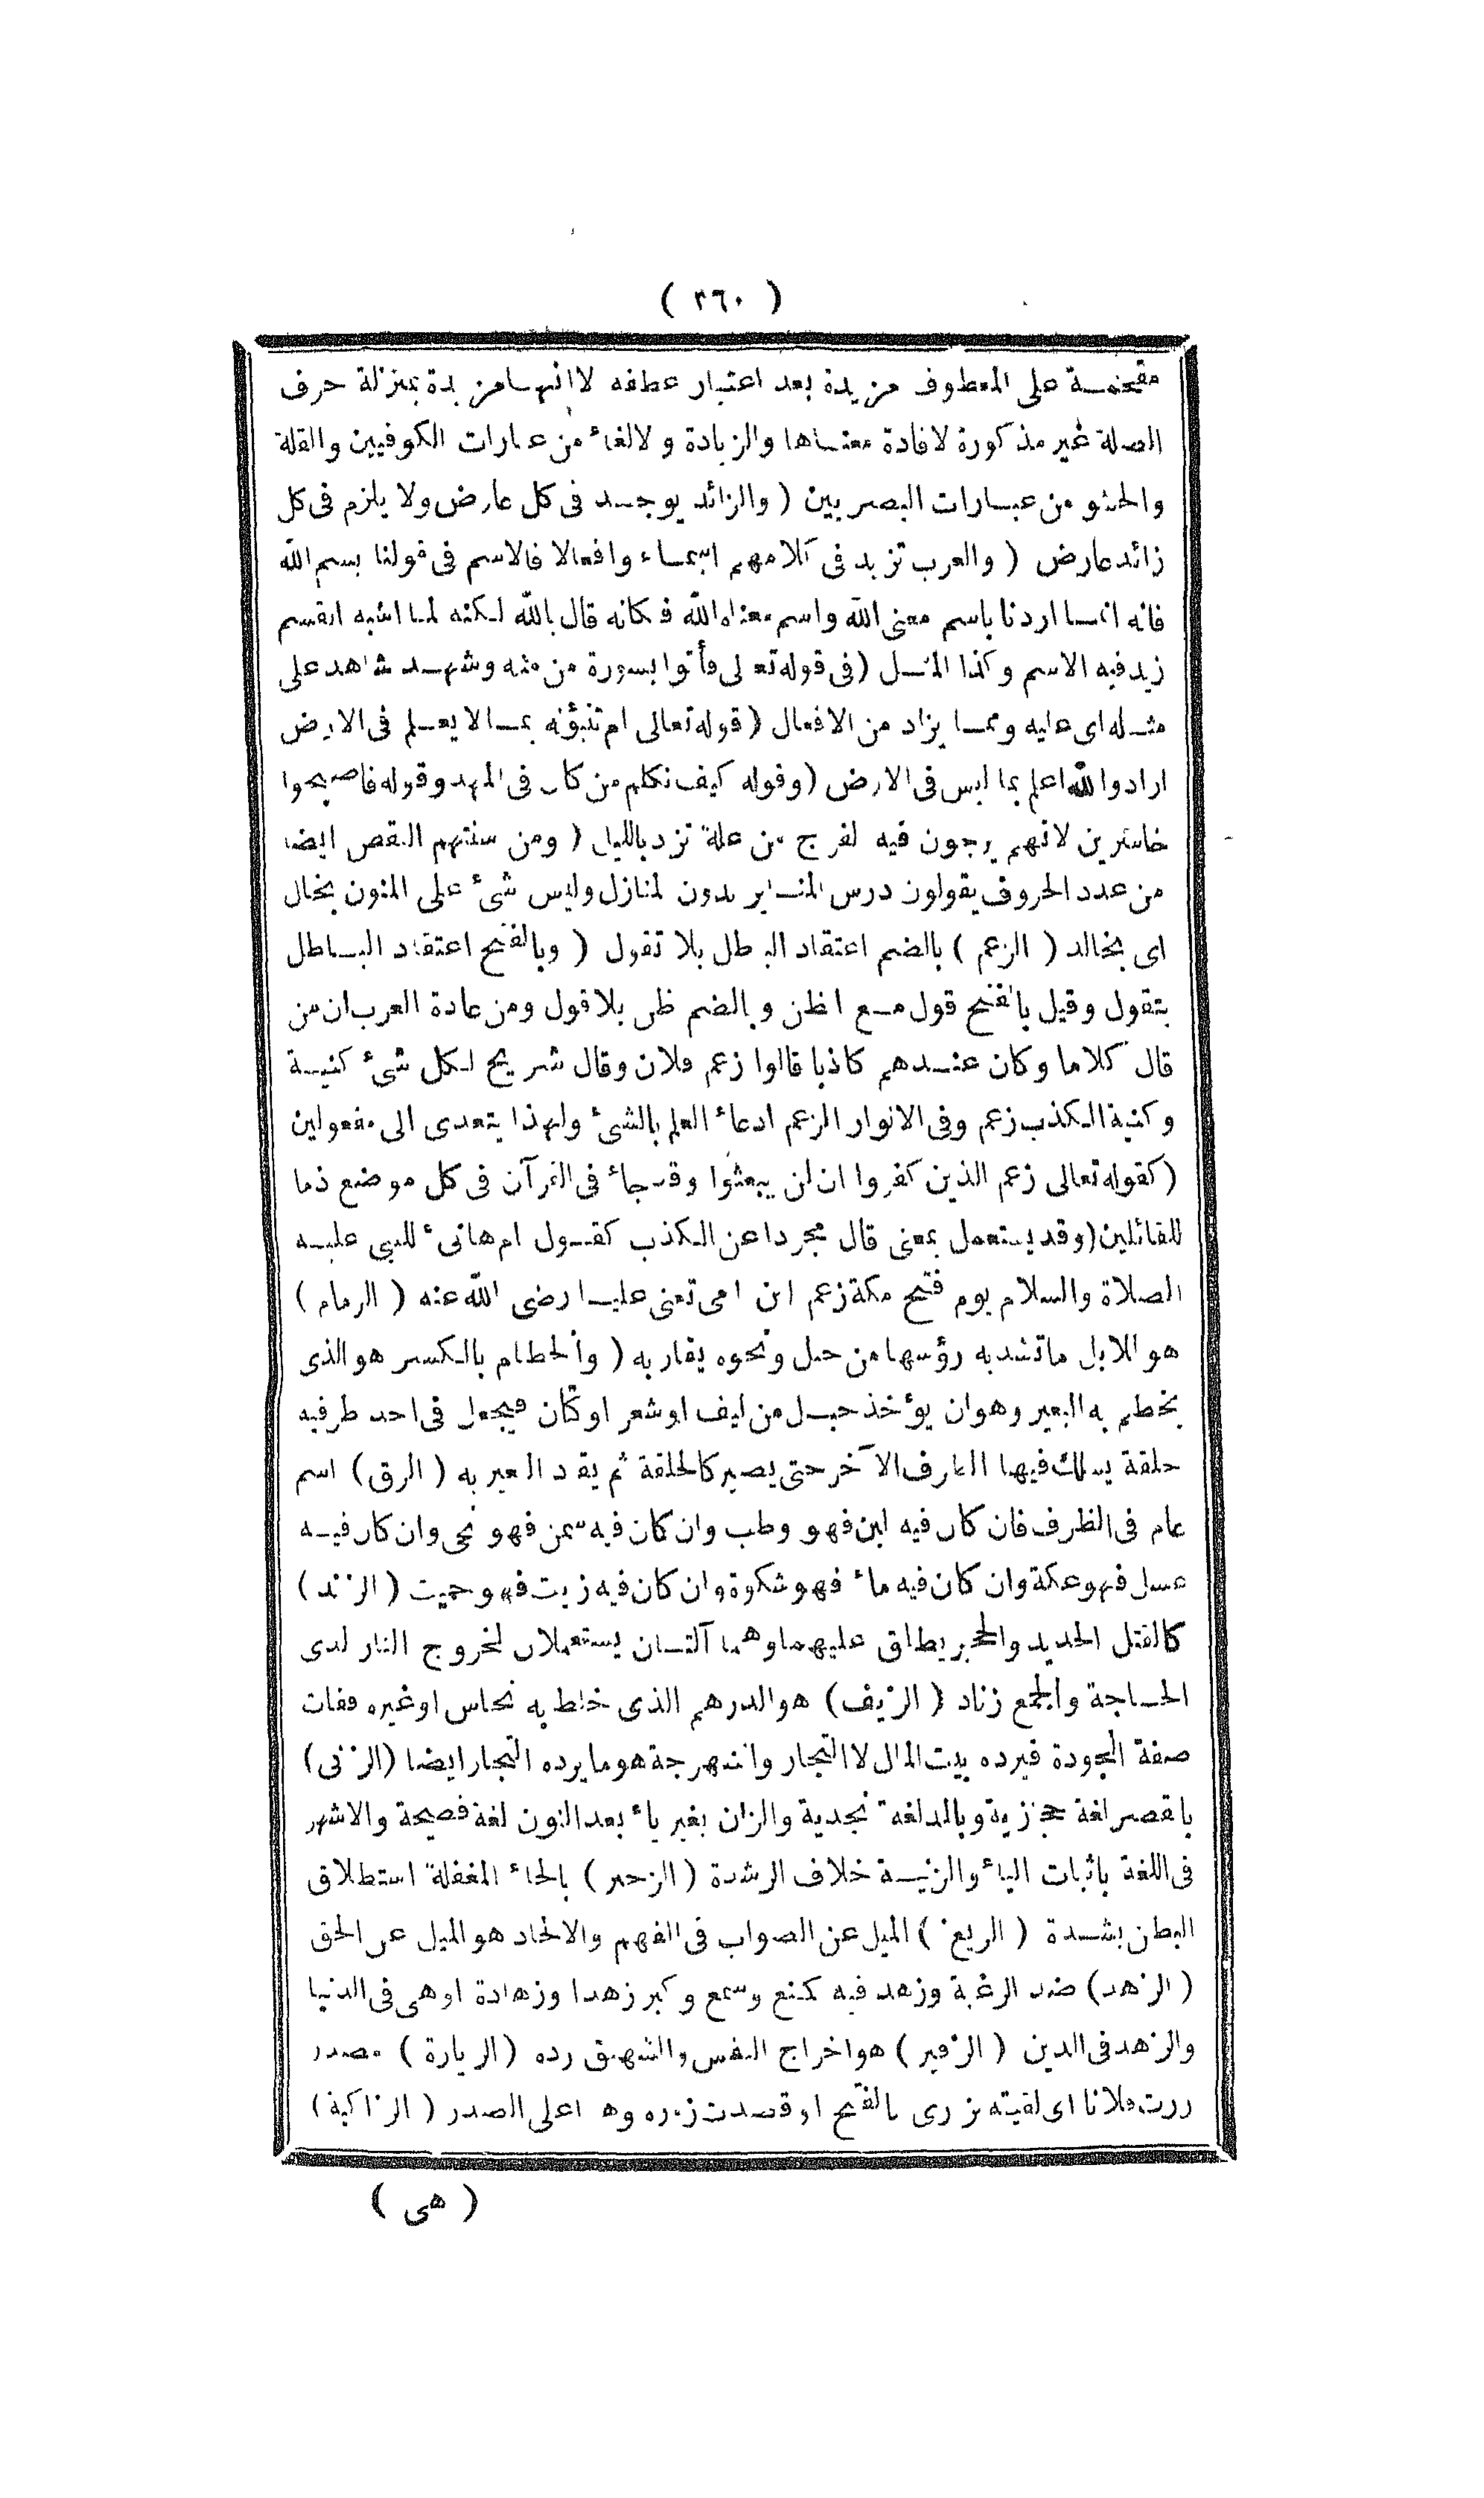 ( ٣٦٠ )
مقحمة على المعطوف مزيدة بعد اعتبار عطفه لا انها مزيدة بمنزلة حرف
الصلة غير مذكورة لافادة معناها والزيادة والالغاء من عبارات الكوفيين والقلة
والحشو من عبارات البصريين ( والزائد يوجد فى كل عارض ولا يلزم فى كل
زائد عارض ( والعرب تزيد فى كلامهم اسماء وافعالا فالاسم فى قولنا بسم الله
فانه انما اردنا باسم معنى الله واسم معناه الله فكانه قال بالله لكنه لما اشبه القسم
زيد فيه الاسم وكذا المثل ( فى قوله تعالى فأتوا بسورة من مثله وشهد شاهد على
مثله اى عليه ومما يزاد من الافعال ( قوله تعالى ام تنبؤنه بما لا يعلم فى الارض
ارادوا لله اعلم بما ليس فى الارض ( وقوله كيف نكلم من كان فى المهد وقوله فاصبحوا
خاسرين لانهم يرجون فيه لفرج من علة تزد بالليل ( ومن سنتهم النقص ايضا
من عدد الحروف يقولون درس المنا يريدون لمنازل وليس شئ على المنون بخال
اى بخالد ( الزعم ) بالضم اعتقاد الباطل بلا تقول ( وبالفتح اعتقاد الباطل
بتقول وقيل بالفتح قول مع الظن وبالضم ظن بلا قول ومن عادة العرب ان من
قال كلاما وكان عندهم كاذبا قالوا زعم فلان وقال شريح لكل شئ كنية
وكنية الكذب زعم وفى الانوار الزعم ادعاء العلم بالشئ ولهذا يتعدى الى مفعولين
( كقوله تعالى زعم الذين كفروا ان لن يبعثوا وقد جاء فى القرآن فى كل موضع ذما
للقائلين ( وقد يستعمل بمعنى قال مجردا عن الكذب كقول ام هانئ للنبى عليه
الصلاة والسلام يوم فتح مكة زعم ابن امى تعنى عليا رضى الله عنه ( الزمام )
هو للابل ما تشد به رؤسها من حبل ونحوه يقاد به ( والخطام بالكسر هو الذى
يخطم به البعير وهو ان يؤخذ حبل من ليف او شعر او كتان فيجعل فى احد طرفيه
حلقة يسلك فيها الطرف الآخر حتى يصير كالحلقة ثم يقاد البعير به ( الزق ) اسم
عام فى الظرف فان كان فيه لبن فهو وطب وان كان فيه سمن فهو نحى وان كان فيه
عسل فهو عكة وان كان فيه ماء فهو شكوة وان كان فيه زيت فهو حميت ( الزند )
كالفتل الحديد والحجر يطلق عليهما وهما آلتان يستعملان لخروج النار لدى
الحاجة والجمع زناد ( الزيف ) هو الدرهم الذى خلط به نحاس او غيره ففات
صفة الجودة فيرده بيت المال لا التجار والنبهرجة هو ما يرده التجار ايضا ( الزنى )
بالقصر لغة حجازية وبالمد لغة نجدية والزان بغير ياء بعد النون لغة فصيحة والاشهر
فى اللغة باثبات الياء والزنية خلاف الرشدة ( الزحير ) بالحاء المغفلة استطلاق
البطن بشدة ( الزيغ ) الميل عن الصواب فى الفهم والالحاد هو الميل عن الحق
( الزهد ) ضد الرغبة وزهد فيه كمنع وسمع وكبر زهدا وزهادة او هى فى الدنيا
والزهد فى الدين ( الزفير ) هو اخراج النفس والشهيق رده ( الزيارة ) مصدر
زرت فلانا اى لقيته بزورى بالفتح او قصدت زوره وهو اعلى الصدر ( الزاكية )
( هى )